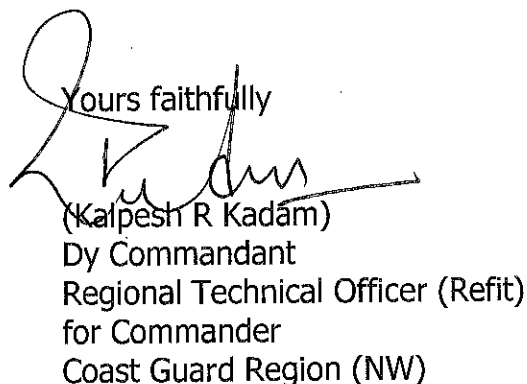 Yours faithfully
(Kalpesh R Kadam)
Dy Commandant
Regional Technical Officer (Refit)
for Commander
Coast Guard Region (NW)